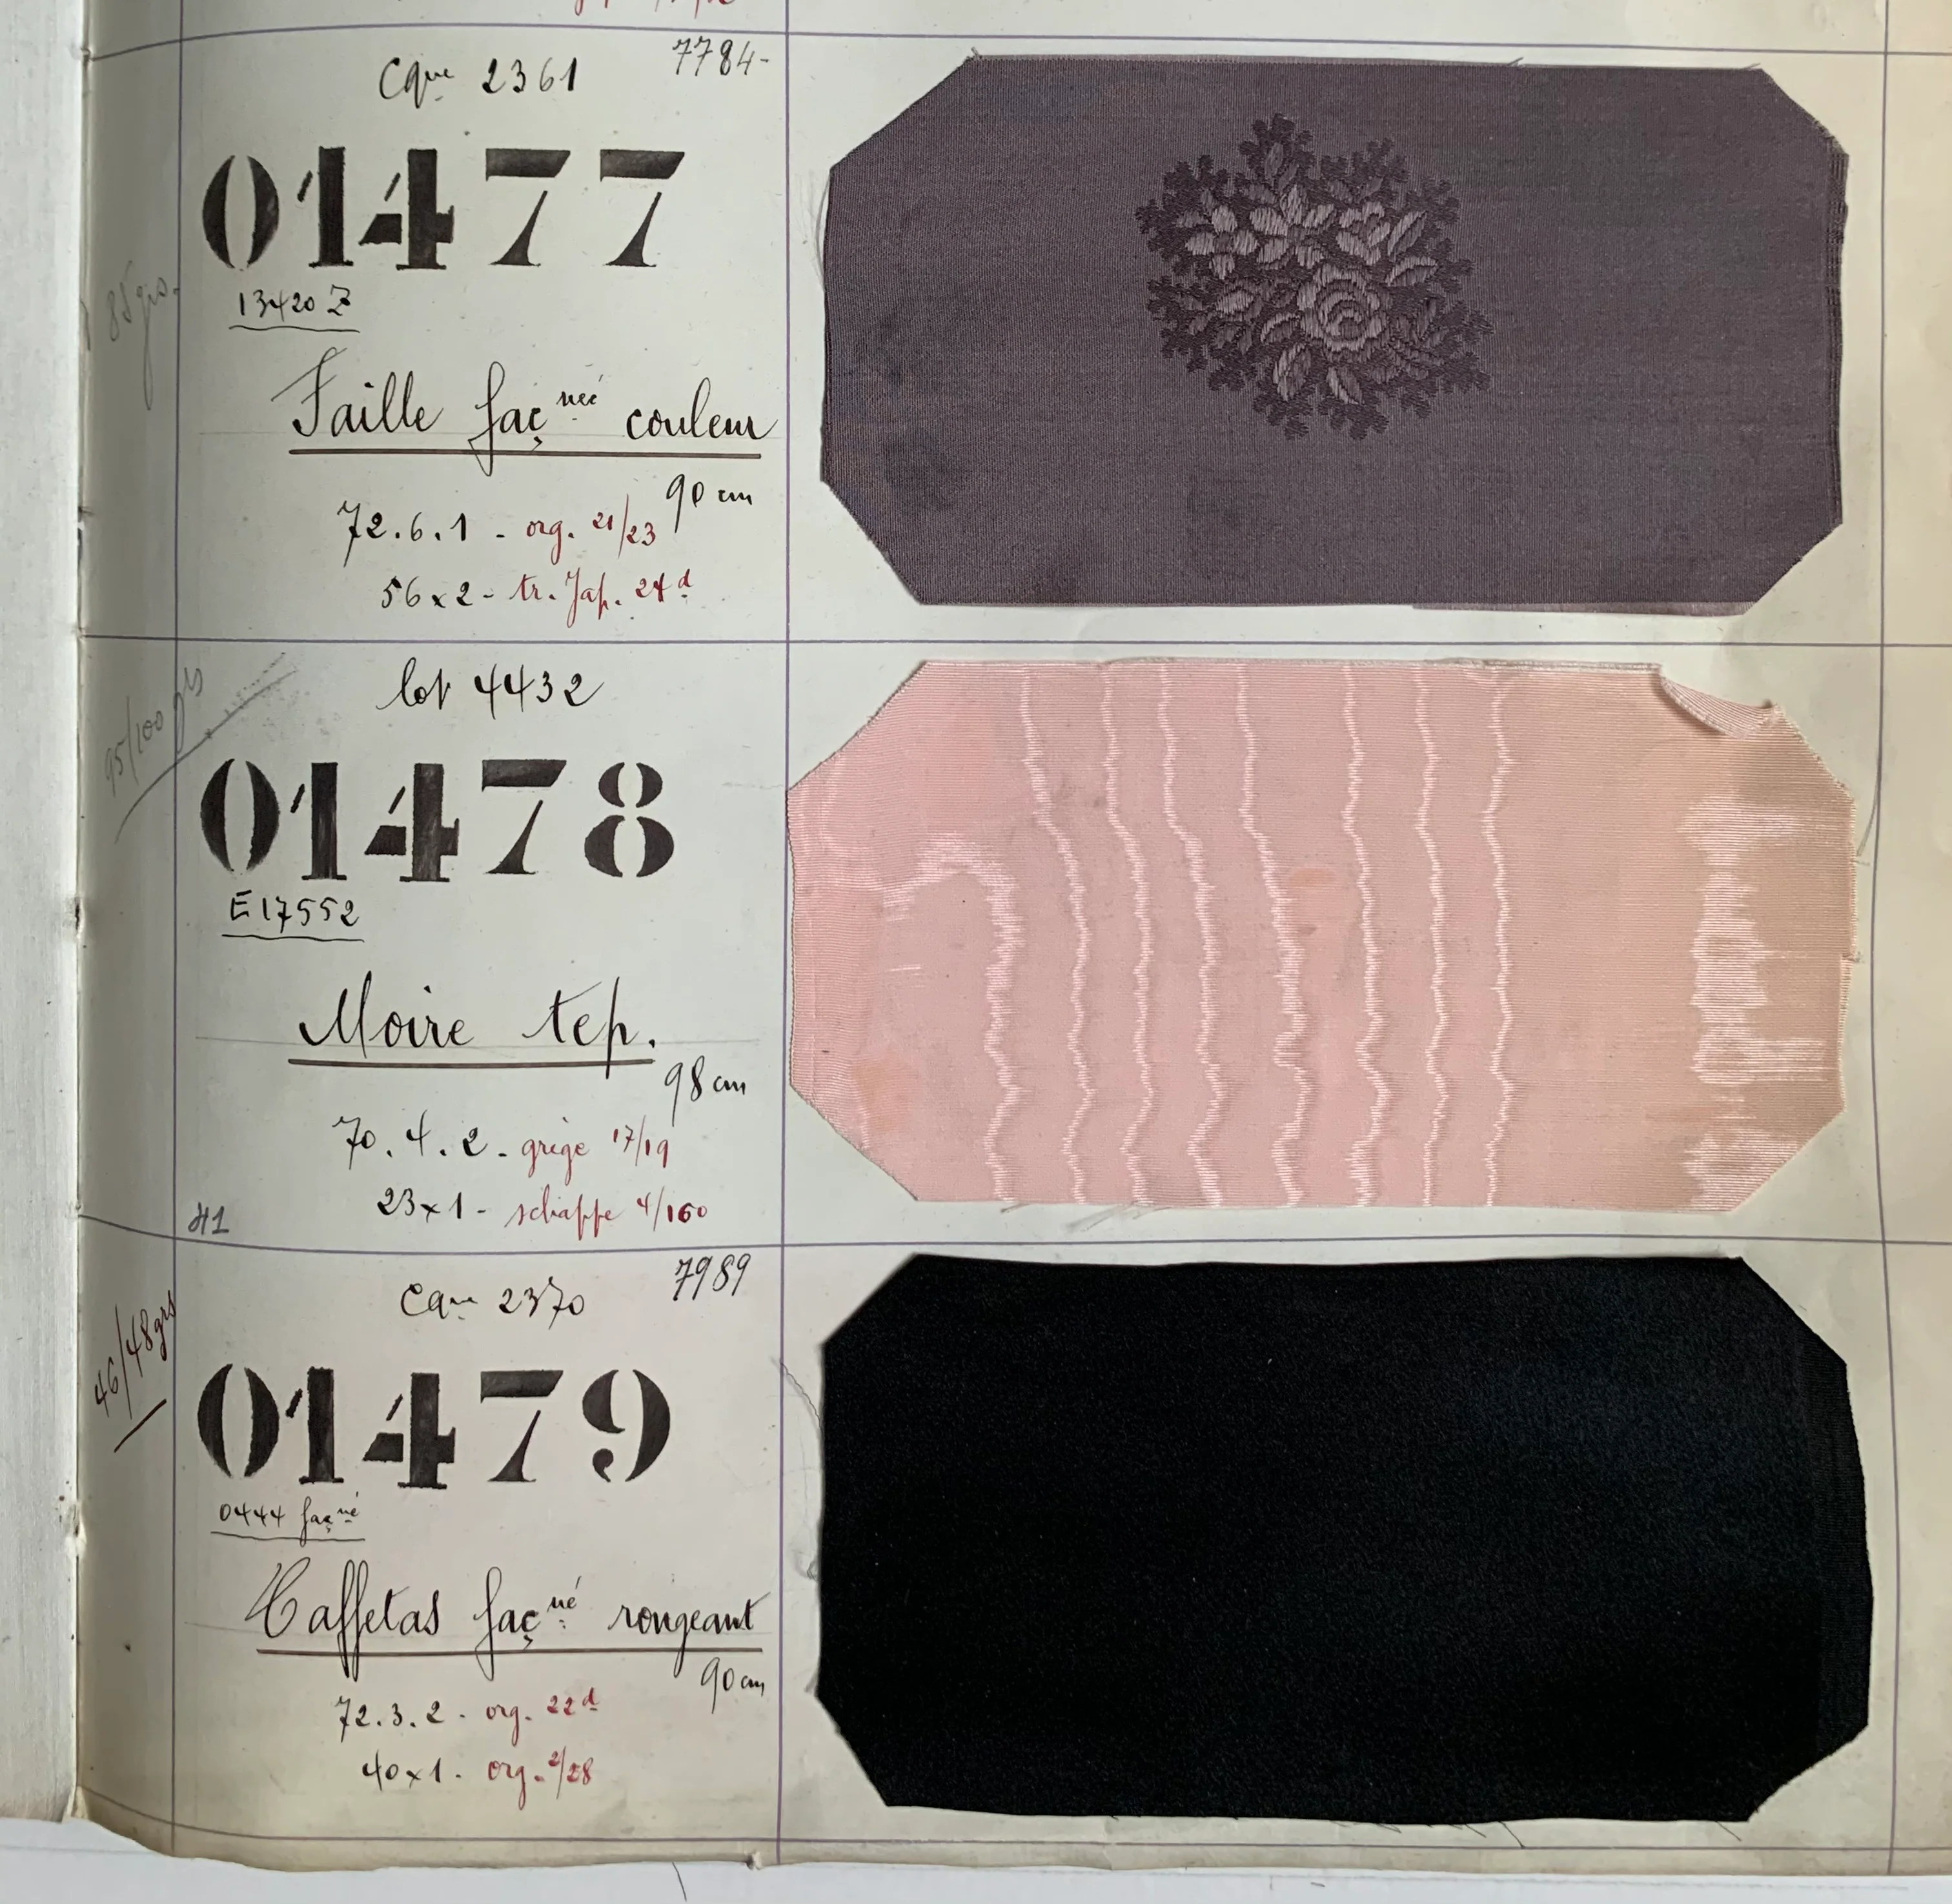 Cque 2361
7784-
01477
13420 Z
85 grs.
Faille façnée couleur
90 cm
72.6.1 - org. 21/23
56x2 - tr. Jap. 24d
lot 4432
95/100 grs
01478
E 17552
Moire tep.
98 cm
70.4.2 - grège 17/19
23x1 - schappe 4/160
H1
Cque 2370
7989
46/48 grs
01479
0444 façné
Taffetas façné rongeant
90 cm
72.3.2 - org. 22d
40x1 - org. 2/28